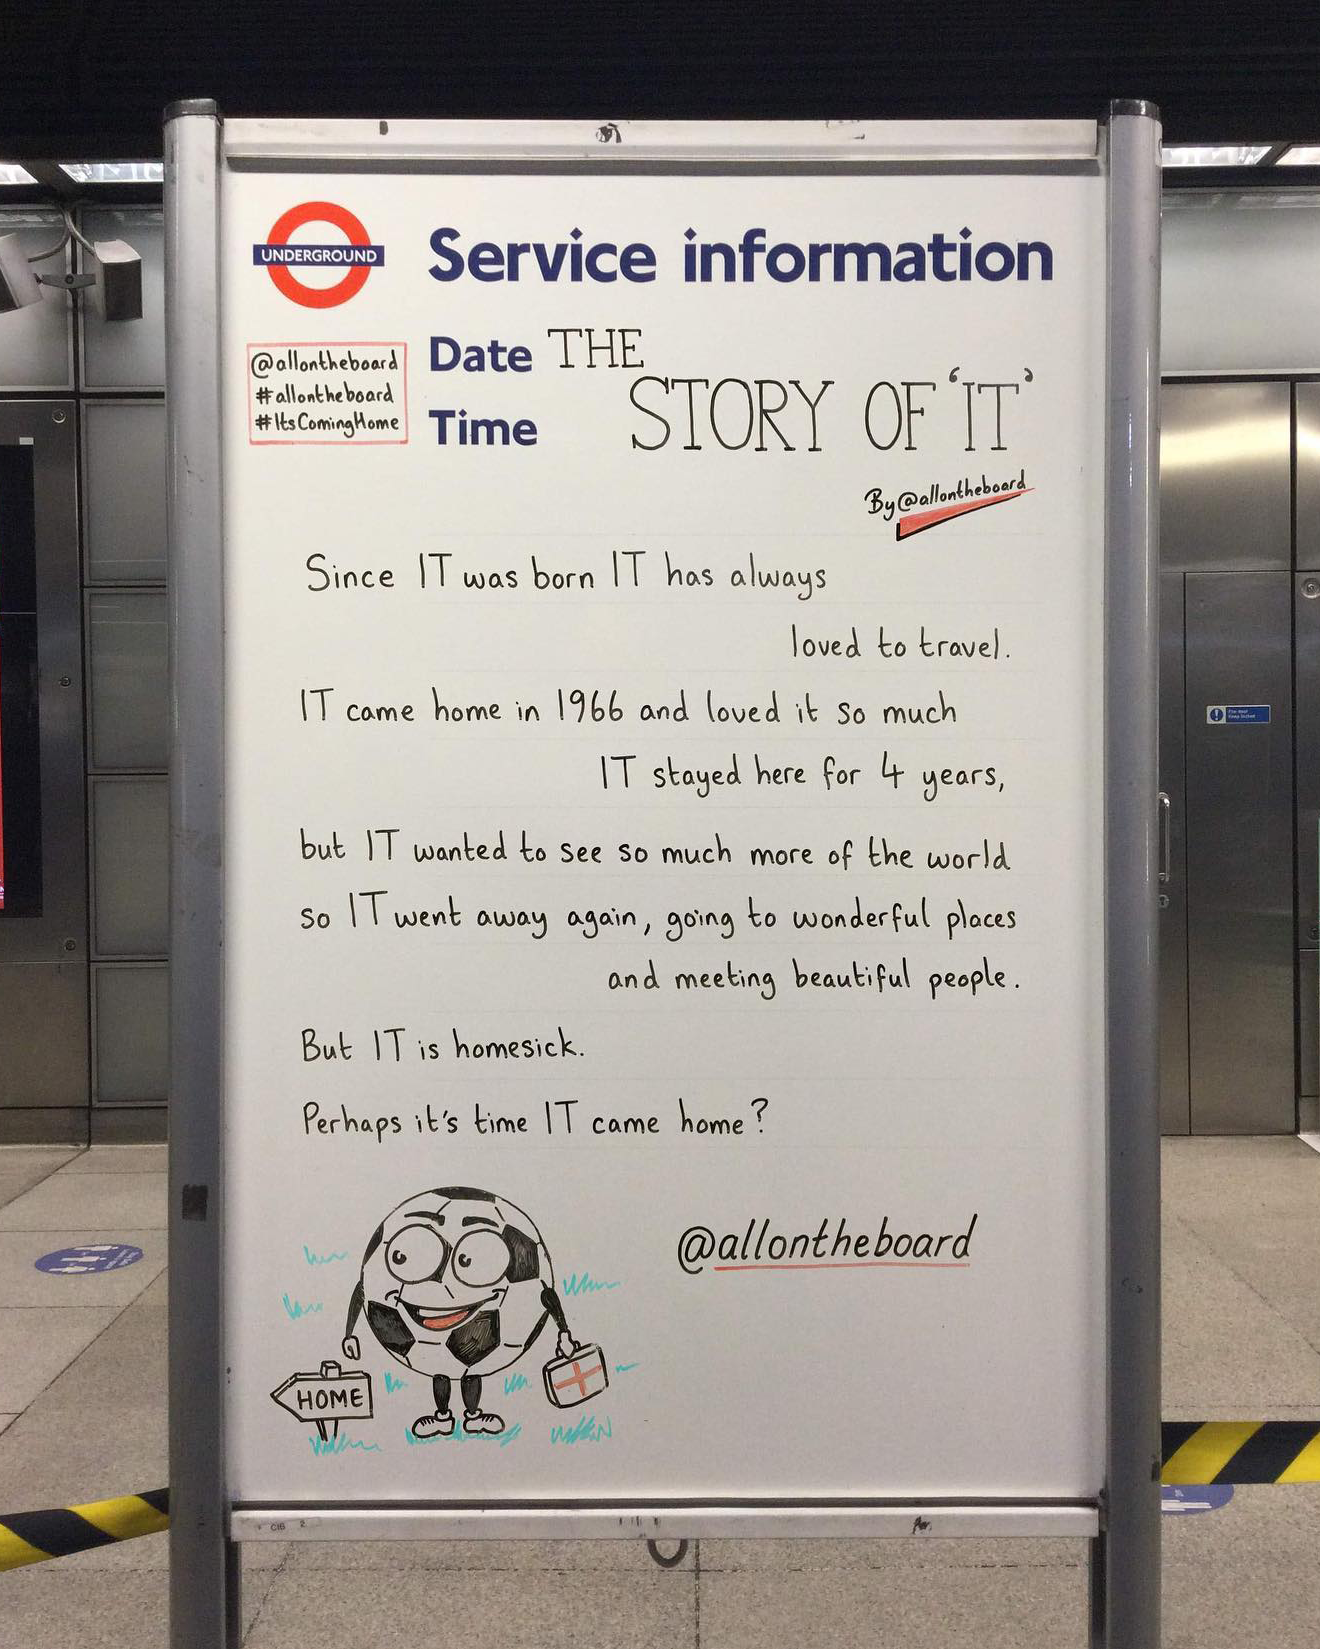 UNDERGROUND
Service information
@allontheboard
#allontheboard
#ItsComingHome
Date
Time
THE
STORY OF 'IT'
By @allontheboard
Since IT was born IT has always
loved to travel.
IT came home in 1966 and loved it so much
IT stayed here for 4 years,
but IT wanted to see so much more of the world
so IT went away again, going to wonderful places
and meeting beautiful people.
But IT is homesick.
Perhaps it's time IT came home?
@allontheboard
HOME